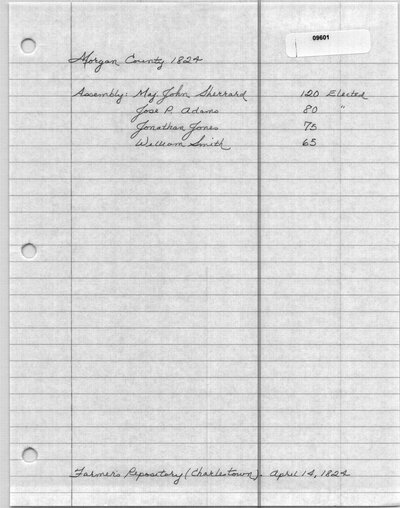 09601
Morgan County 1824
Assembly: Maj. John Sherrard 120 Elected
Jose P. Adams 80 "
Jonathan Jones 75
William Smith 65
Farmer's Repository (Charlestown). April 14, 1824